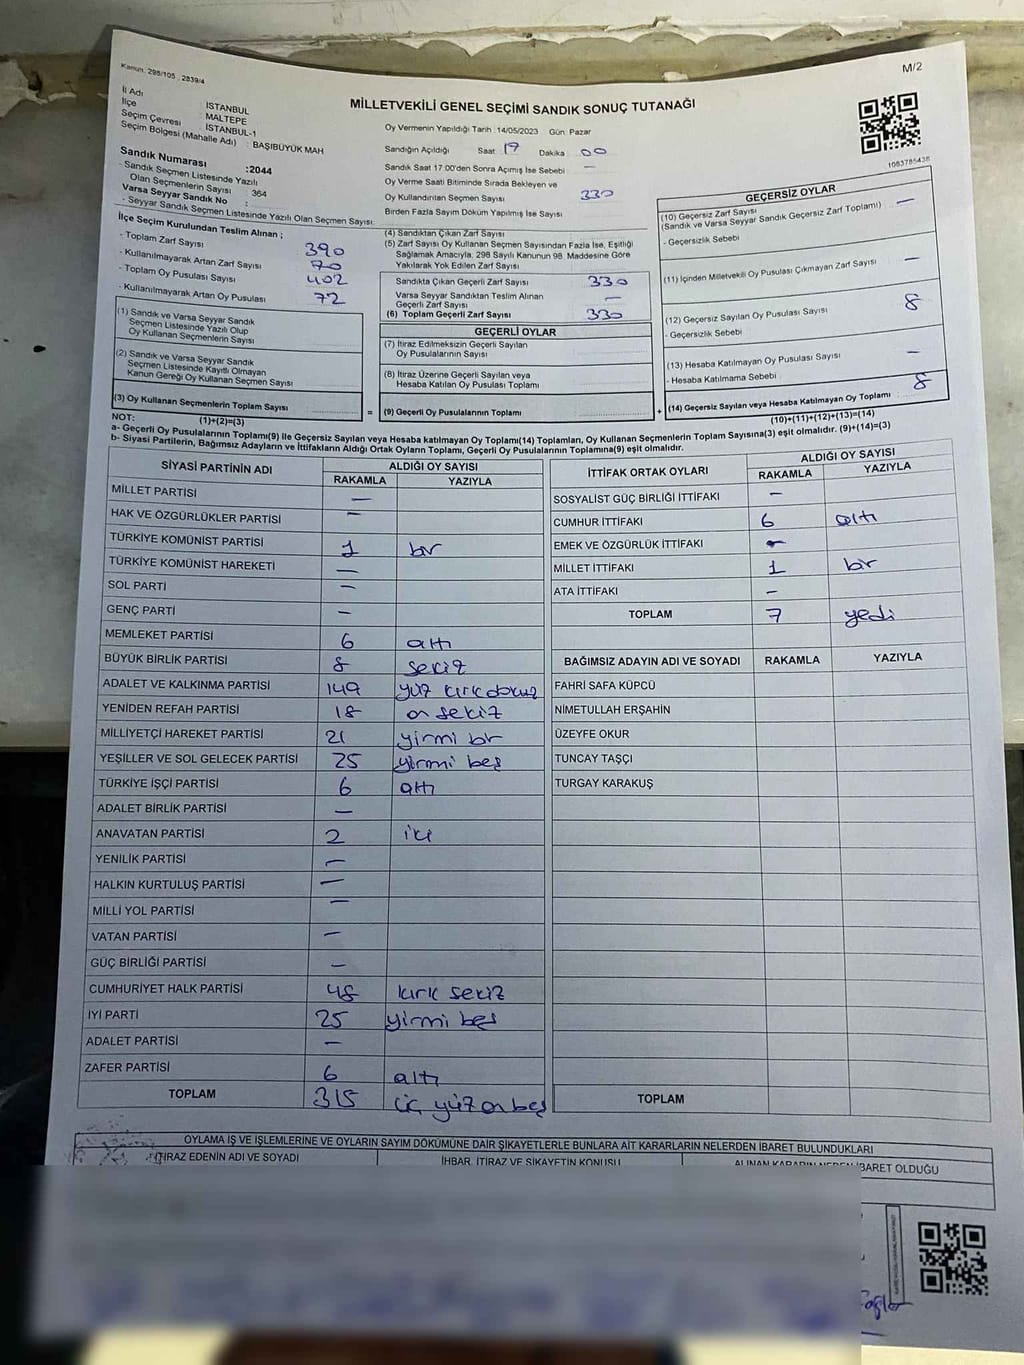 Kanun: 298/105 , 2839/4
M/2
MİLLETVEKİLİ GENEL SEÇİMİ SANDIK SONUÇ TUTANAĞI
İl Adı : İSTANBUL
İlçe : MALTEPE
Seçim Çevresi : İSTANBUL-1
Seçim Bölgesi (Mahalle Adı) : BAŞIBÜYÜK MAH
Sandık Numarası :2044
- Sandık Seçmen Listesinde Yazılı
Olan Seçmenlerin Sayısı : 364
Varsa Seyyar Sandık No :
- Seyyar Sandık Seçmen Listesinde Yazılı Olan Seçmen Sayısı:
İlçe Seçim Kurulundan Teslim Alınan ;
- Toplam Zarf Sayısı 390
- Kullanılmayarak Artan Zarf Sayısı 70
- Toplam Oy Pusulası Sayısı 402
- Kullanılmayarak Artan Oy Pusulası 72
(1) Sandık ve Varsa Seyyar Sandık
Seçmen Listesinde Yazılı Olup
Oy Kullanan Seçmenlerin Sayısı
(2) Sandık ve Varsa Seyyar Sandık
Seçmen Listesinde Kayıtlı Olmayan
Kanun Gereği Oy Kullanan Seçmen Sayısı
(3) Oy Kullanan Seçmenlerin Toplam Sayısı
(1)+(2)=(3)
Oy Vermenin Yapıldığı Tarih :14/05/2023 Gün: Pazar
Sandığın Açıldığı Saat 19 Dakika 00
Sandık Saat 17:00'den Sonra Açımış İse Sebebi —
Oy Verme Saati Bitiminde Sırada Bekleyen ve
Oy Kullandırılan Seçmen Sayısı 330
Birden Fazla Sayım Döküm Yapılmış İse Sayısı
(4) Sandıktan Çıkan Zarf Sayısı
(5) Zarf Sayısı Oy Kullanan Seçmen Sayısından Fazla İse, Eşitliği
Sağlamak Amacıyla, 298 Sayılı Kanunun 98. Maddesine Göre
Yakılarak Yok Edilen Zarf Sayısı
Sandıkta Çıkan Geçerli Zarf Sayısı 330
Varsa Seyyar Sandıktan Teslim Alınan
Geçerli Zarf Sayısı —
(6) Toplam Geçerli Zarf Sayısı 330
GEÇERLİ OYLAR
(7) İtiraz Edilmeksizin Geçerli Sayılan
Oy Pusulalarının Sayısı
(8) İtiraz Üzerine Geçerli Sayılan veya
Hesaba Katılan Oy Pusulası Toplamı
= (9) Geçerli Oy Pusulalarının Toplamı +
1083785438
GEÇERSİZ OYLAR
(10) Geçersiz Zarf Sayısı
(Sandık ve Varsa Seyyar Sandık Geçersiz Zarf Toplamı) —
- Geçersizlik Sebebi
(11) İçinden Milletvekili Oy Pusulası Çıkmayan Zarf Sayısı —
(12) Geçersiz Sayılan Oy Pusulası Sayısı 8
- Geçersizlik Sebebi
(13) Hesaba Katılmayan Oy Pusulası Sayısı —
- Hesaba Katılmama Sebebi
(14) Geçersiz Sayılan veya Hesaba Katılmayan Oy Toplamı 8
(10)+(11)+(12)+(13)=(14)
NOT:
a- Geçerli Oy Pusulalarının Toplamı(9) ile Geçersiz Sayılan veya Hesaba katılmayan Oy Toplamı(14) Toplamları, Oy Kullanan Seçmenlerin Toplam Sayısına(3) eşit olmalıdır. (9)+(14)=(3)
b- Siyasi Partilerin, Bağımsız Adayların ve İttifakların Aldığı Ortak Oyların Toplamı, Geçerli Oy Pusulalarının Toplamına(9) eşit olmalıdır.
SİYASİ PARTİNİN ADI ALDIĞI OY SAYISI
RAKAMLA YAZIYLA
MİLLET PARTİSİ —
HAK VE ÖZGÜRLÜKLER PARTİSİ —
TÜRKİYE KOMÜNİST PARTİSİ 1 bir
TÜRKİYE KOMÜNİST HAREKETİ —
SOL PARTİ —
GENÇ PARTİ —
MEMLEKET PARTİSİ 6 altı
BÜYÜK BİRLİK PARTİSİ 8 sekiz
ADALET VE KALKINMA PARTİSİ 149 yüz kırk dokuz
YENİDEN REFAH PARTİSİ 18 on sekiz
MİLLİYETÇİ HAREKET PARTİSİ 21 yirmi bir
YEŞİLLER VE SOL GELECEK PARTİSİ 25 yirmi beş
TÜRKİYE İŞÇİ PARTİSİ 6 altı
ADALET BİRLİK PARTİSİ —
ANAVATAN PARTİSİ 2 iki
YENİLİK PARTİSİ —
HALKIN KURTULUŞ PARTİSİ —
MİLLİ YOL PARTİSİ —
VATAN PARTİSİ —
GÜÇ BİRLİĞİ PARTİSİ —
CUMHURİYET HALK PARTİSİ 48 kırk sekiz
İYİ PARTİ 25 yirmi beş
ADALET PARTİSİ —
ZAFER PARTİSİ 6 altı
TOPLAM 315 üç yüz on beş
İTTİFAK ORTAK OYLARI ALDIĞI OY SAYISI
RAKAMLA YAZIYLA
SOSYALİST GÜÇ BİRLİĞİ İTTİFAKI —
CUMHUR İTTİFAKI 6 altı
EMEK VE ÖZGÜRLÜK İTTİFAKI —
MİLLET İTTİFAKI 1 bir
ATA İTTİFAKI —
TOPLAM 7 yedi
BAĞIMSIZ ADAYIN ADI VE SOYADI RAKAMLA YAZIYLA
FAHRİ SAFA KÜPCÜ
NİMETULLAH ERŞAHİN
ÜZEYFE OKUR
TUNCAY TAŞÇI
TURGAY KARAKUŞ
TOPLAM
OYLAMA İŞ VE İŞLEMLERİNE VE OYLARIN SAYIM DÖKÜMÜNE DAİR ŞİKAYETLERLE BUNLARA AİT KARARLARIN NELERDEN İBARET BULUNDUKLARI
İTİRAZ EDENİN ADI VE SOYADI İHBAR, İTİRAZ VE ŞİKAYETİN KONUSU ALINAN KARARIN NEDEN İBARET OLDUĞU